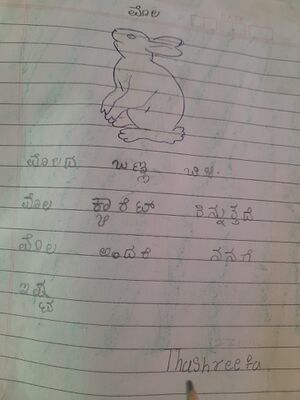 ಮೊಲ
ಮೊಲದ ಬಣ್ಣ ಬಿಳಿ.
ಮೊಲ ಕ್ಯಾರೆಟ್ ತಿನ್ನುತ್ತದೆ
ಮೊಲ ಅಂದಕೆ ನನಗೆ
ಇಷ್ಟ
Thashreefa